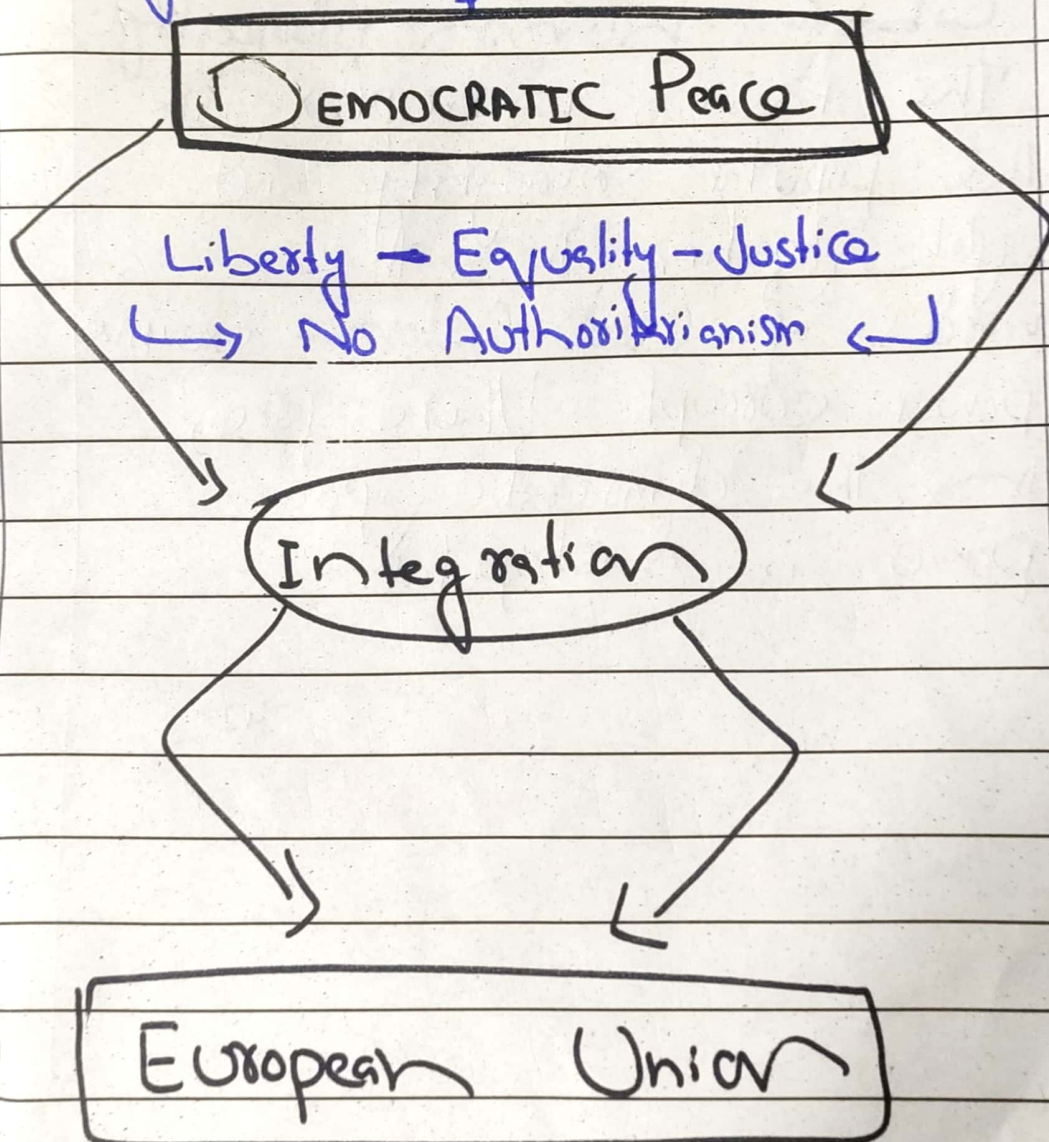 DEMOCRATIC Peace
Liberty - Equality - Justice
↳ No Authoritarianism ↲
Integration
European Union